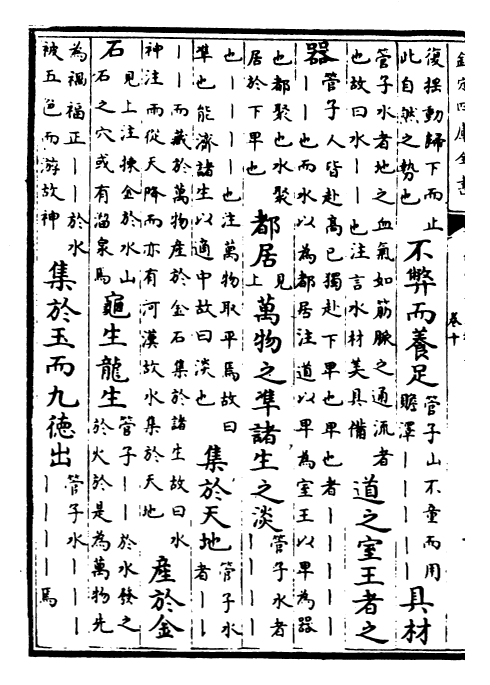 欽定四庫全書
卷十
復揺動歸下而止此自然之勢也 不弊而養足 管子山不童而用贍澤丨丨丨丨丨 具材
管子水者地之血氣如筋脈之通流者也故曰水丨丨也注言水材美具備 道之室王者之
器 管子人皆赴髙已獨赴下卑也卑也者丨丨丨丨丨丨丨也而水以為都居注道以卑為室王以卑為器
也都聚也水聚居於下卑也 都居 見上 萬物之準諸生之淡 管子水者丨丨丨丨
也丨丨丨丨也注萬物取平焉故曰準也能濟諸生以適中故曰淡也 集於天地 管子水者丨丨
丨丨而藏於萬物産於金石集於諸生故曰水神注而從天降而亦有河漢故水集於天地 産於金
石 見上注揀金於水山石之穴或有溜泉焉 龜生龍生 管子丨丨於水發之於火於是為萬物先
為禍福正丨丨於水被五色而游故神 集於玉而九徳出 管子水丨丨丨丨丨丨丨焉